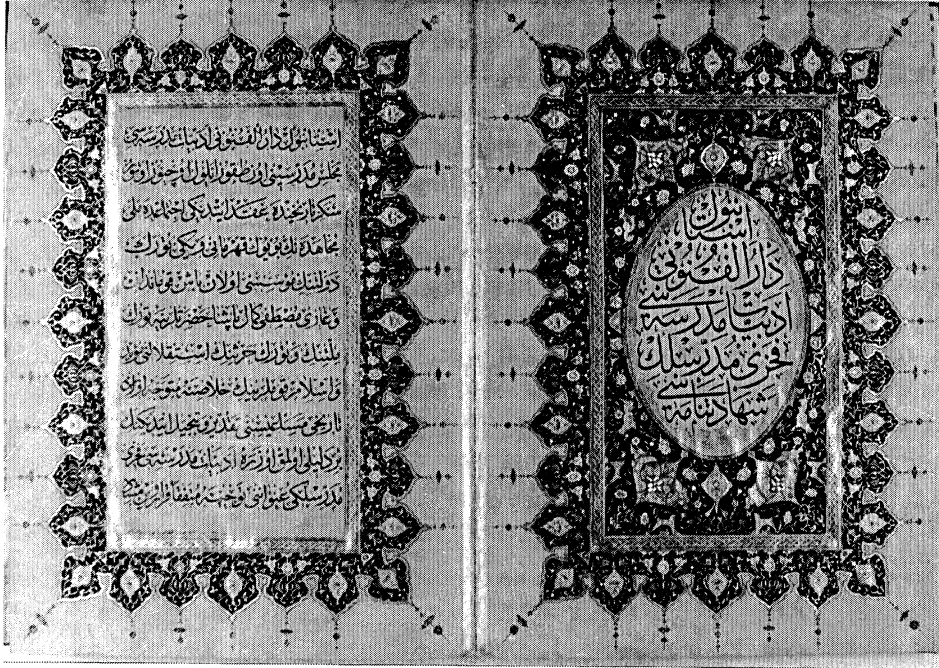 استانبول
دار الفنونی
ادبیات مدرسه سی
فخری مدرسلك
شهادتنامه سی
استانبول دار الفنونی ادبیات مدرسه سی
مجلس مدرسینی اون طقوز ایلول اوچیوز اوتوز
سكز تاریخنده عقد ایتدیكی اجتماعده ملی
مجاهده نك بویوك قهرمانی و یكی تورك
دولتنك مؤسسی اولان باش قوماندان
و غازی مصطفی كمال پاشا حضرتلرینه تورك
ملتنك و تورك حرثنك استقلالنی
اسلام قوملرینك خلاصنه متوجه
تاریخی مساعیسنی تقدیر و تبجیل ایتدیكنك
بر دلیلی اولمق اوزره ادبیات مدرسه سی فخری
مدرسلكی عنواننی توجیهه متفقا قرار